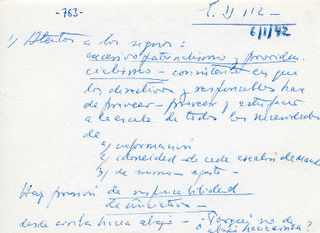 -763-
6/11/42
1) Atentos a los signos:
excesivo paternalismo y providen
cialismo - consistente en que
los directivos y responsables han
de proveer - prever y satisfacer
a la escala de todas las necesidades
de
1) información
2) idoneidad de cada escalón de mando
3) de mismo
Hay presión de responsabilidad
de iniciativa -
desde arriba hacia abajo - ¿Porqué no de
abajo hacia arriba?